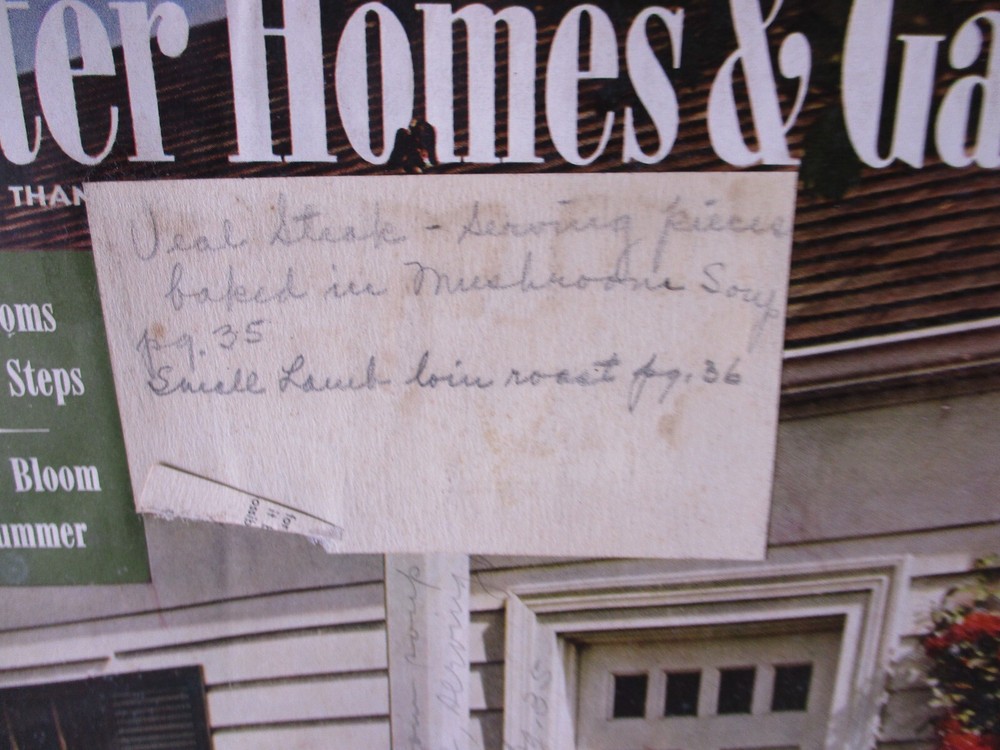 ter Homes & Ga
THAN
Veal Steak - Serving pieces
baked in Mushroom Soup
pg. 35
Small Lamb loin roast pg. 36
oms
Steps
Bloom
ummer
for
it
ossib
soup
, serving